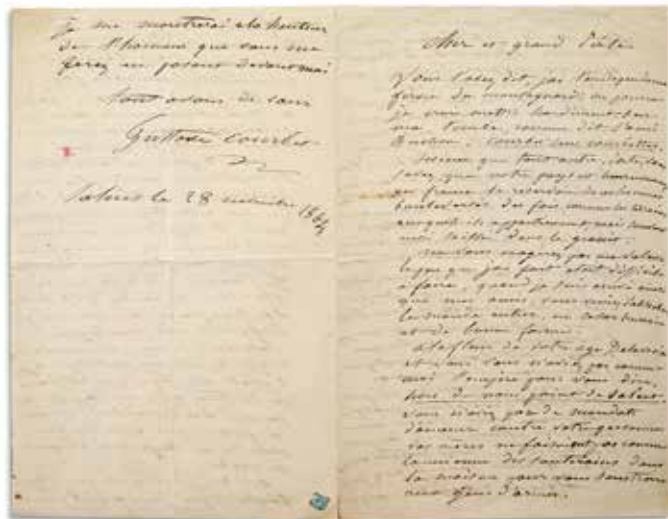 je me montrerai à la hauteur
de l'honneur que vous me
ferez en posant devant moi
tout à vous de
Gustave Courbet
Salins le 28 novembre 1864
Cher et grand Poète
Vous l'avez dit, j'ai l'indépendance
féroce du montagnard, on pourra
je crois mettre hardiment sur
ma tombe, comme dit l'ami
Buchon, Courbet sans courbettes.
Mieux que tout autre, poète, vous
savez que notre pays est
en France le réservoir de ces hommes
bouleversés des fois comme les terrains
auxquels ils appartiennent mais souvent
aussi taillés dans le granit.
que j'ai fait était difficile
à faire, quand je suis arrivé
que mes amis, vous
le monde entier,
et de bonne forme.
à la fleur de votre âge
et vous n'aviez pas comme
moi pour vous dire
hors de nous point de salut.
vous n'aviez pas de mandats
d'amener contre votre personne
vos mères ne faisaient pas comme
la mienne des souterrains dans
la maison pour vous soustraire
aux gens d'armes.